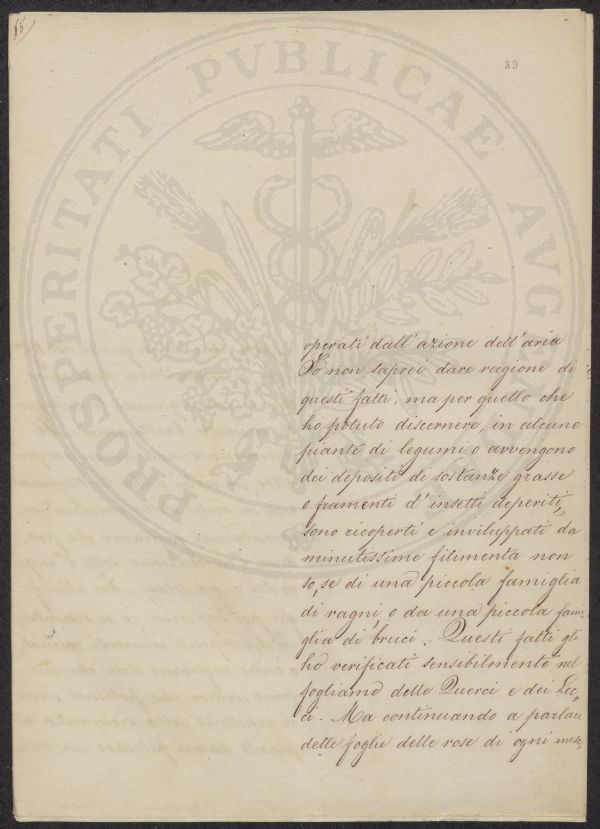 85
39
PROSPERITATI PVBLICAE AVG
operati dall'azione dell'aria
Io non saprei dare ragione di
questi fatti, ma per quello che
ho potuto discernere, in alcune
piante di legumi o avvengono
dei depositi di sostanze grasse
o framenti d'insetti deperiti,
sono ricoperti e inviluppati da
minutissime filimenta non
so, se di una piccola famiglia
di ragni, o da una piccola fami-
glia di bruci. Questi fatti gli
ho verificati sensibilmente nel
fogliame delle Querci e dei Lec-
ci. Ma continuando a parlare
delle foglie delle rose di ogni mese,